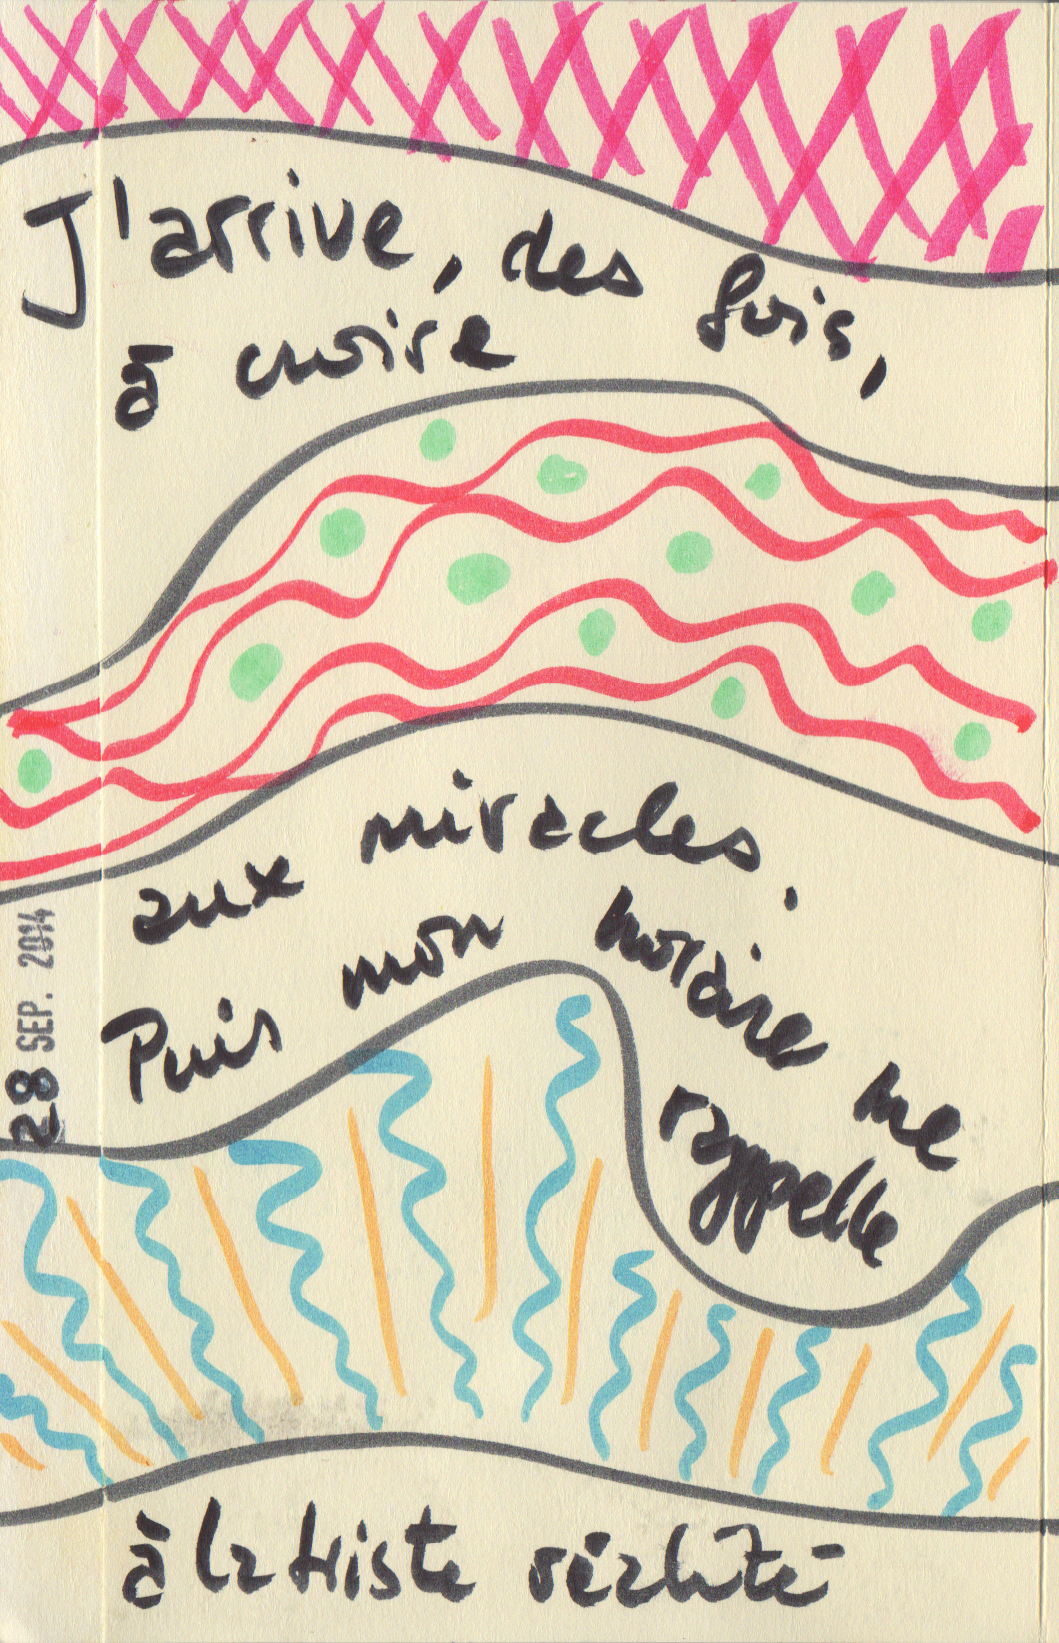 J'arrive, des fois,
à croire
aux miracles.
Puis mon horaire me
rappelle
à la triste réalité
28 SEP. 2014